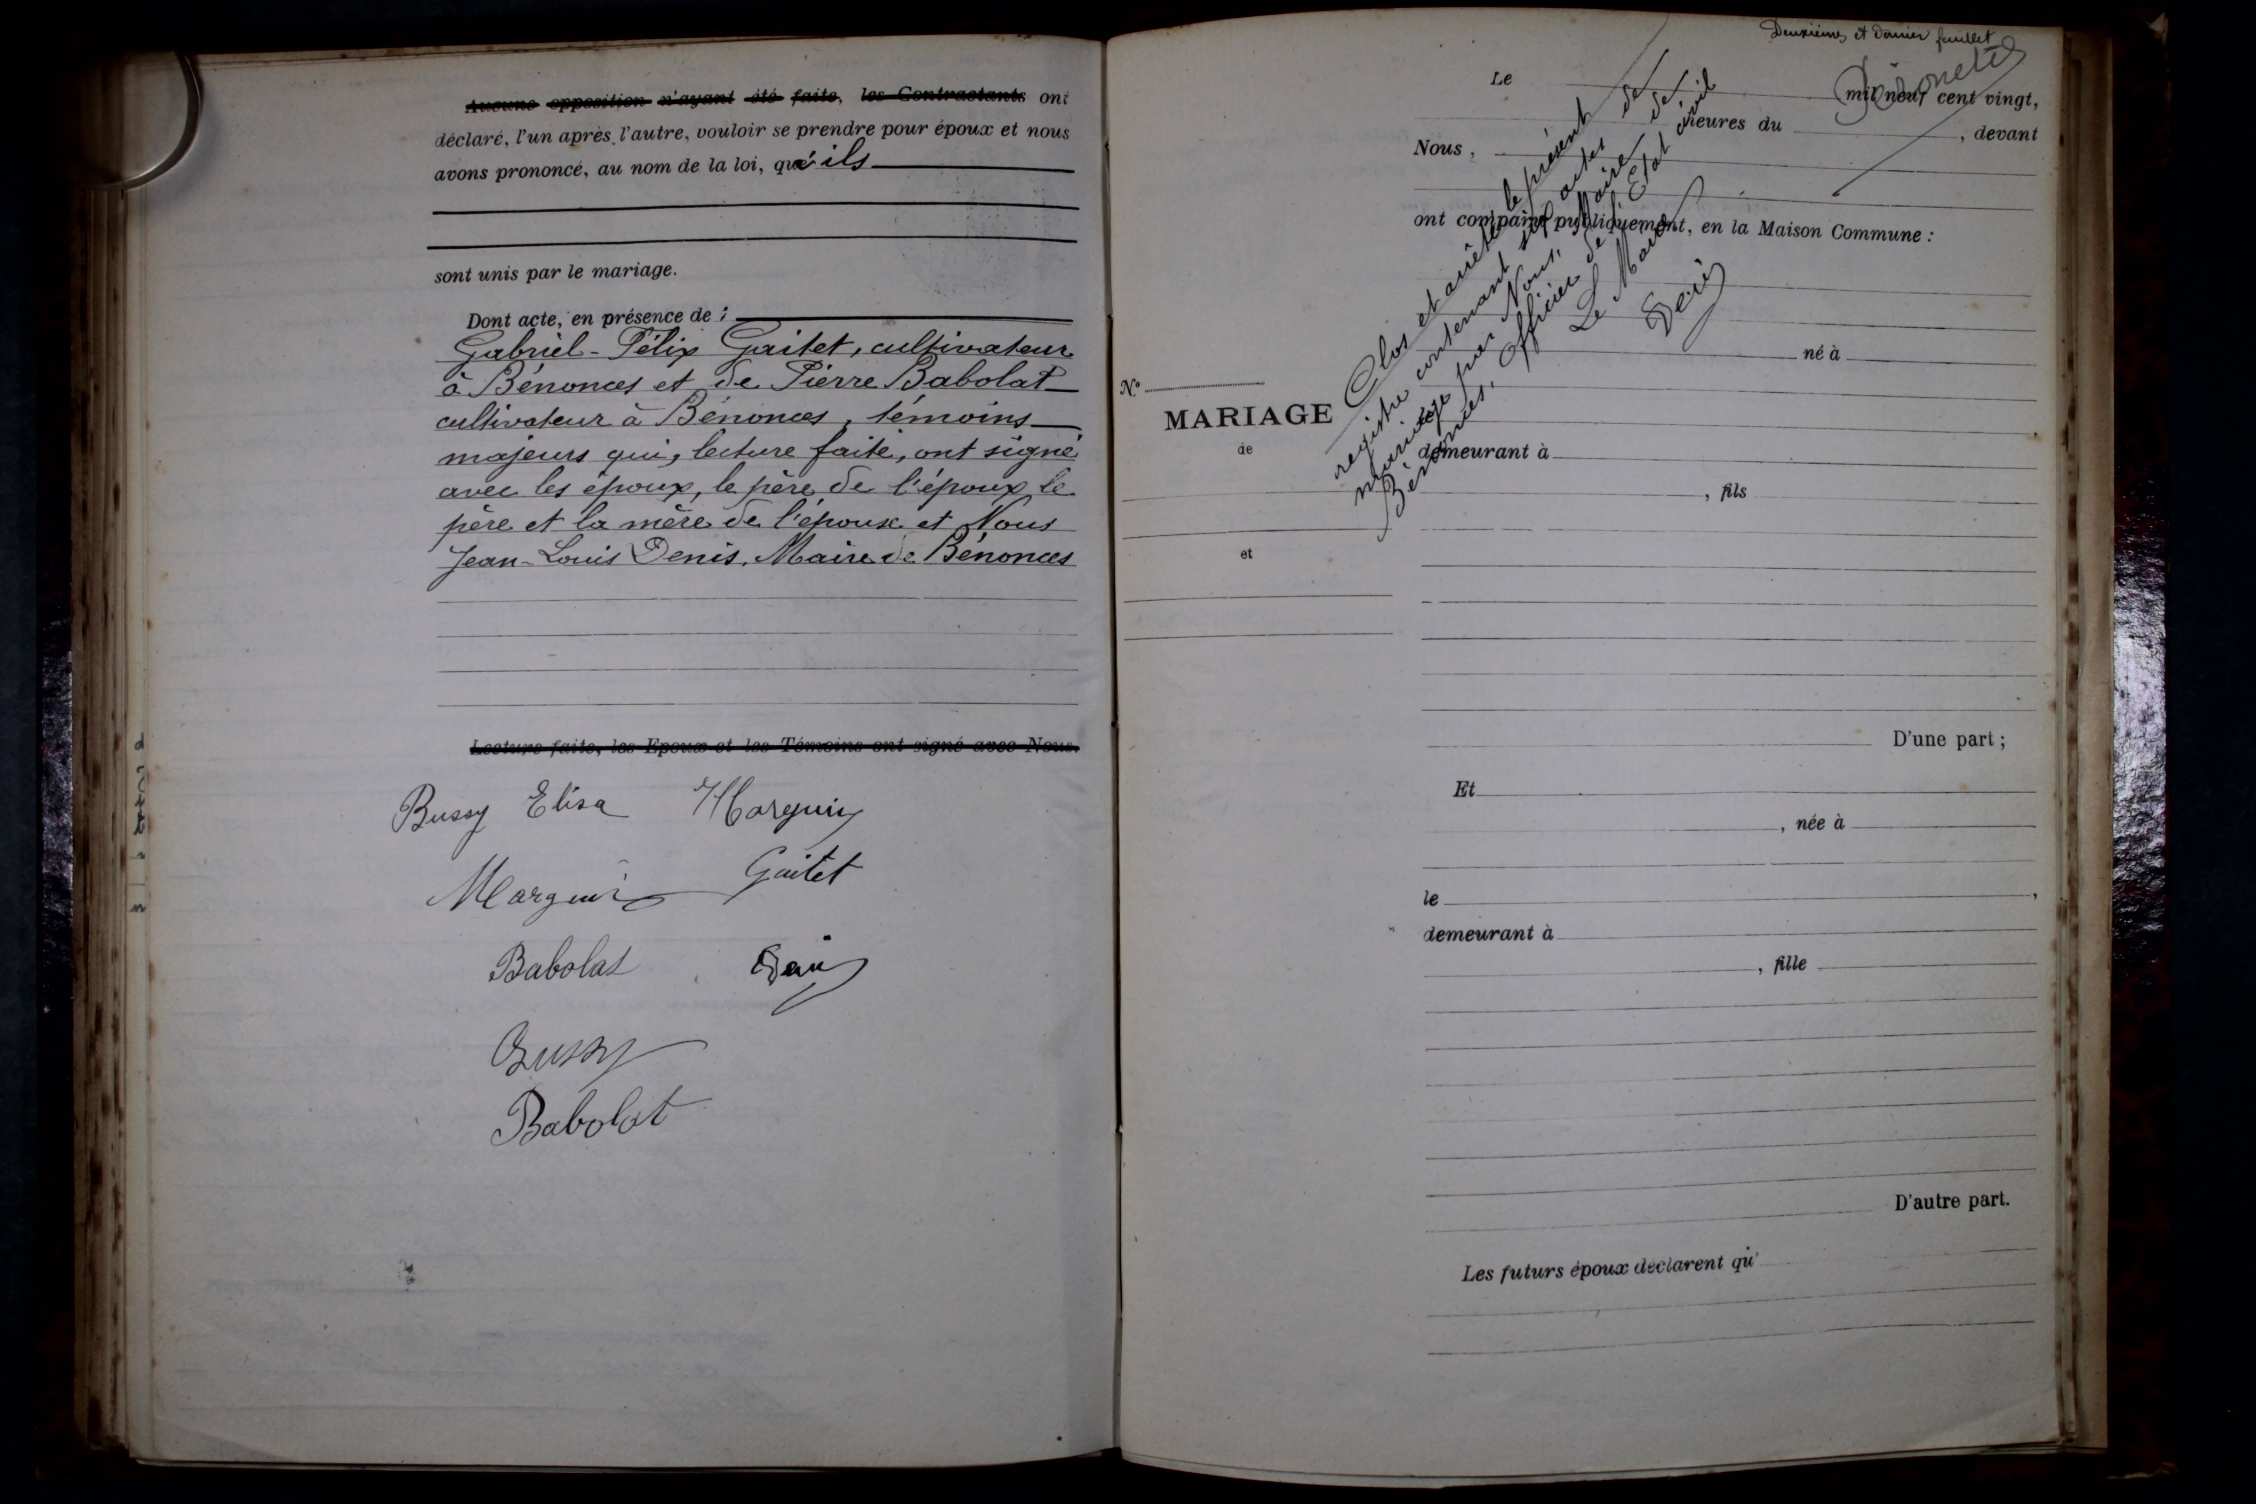 Aucune opposition n'ayant été faite, les Contractants ont
déclaré, l'un après l'autre, vouloir se prendre pour époux et nous
avons prononcé, au nom de la loi, qu'ils
sont unis par le mariage.
Dont acte, en présence de :
Gabriel-Félix Gaitet, cultivateur
à Bénonces et de Pierre Babolat
cultivateur à Bénonces, témoins
majeurs qui, lecture faite, ont signé
avec les époux, le père de l'époux le
père et la mère de l'épouse et Nous
Jean-Louis Denis, Maire de Bénonces
Lecture faite, les Epoux et les Témoins ont signé avec Nous.
Bussy Elisa Marguin
Marguin Gaitet
Babolat Denis
Bussy
Babolat
Deuxième et dernier feuillet
Le
mil neuf cent vingt,
heures du , devant
Nous,
ont comparu publiquement, en la Maison Commune :
Clos et arrêté le présent
registre contenant sept actes de
mariage par Nous, Maire de
Bénonces, Officier de l'Etat civil
Le Maire
Denis
né à
No
MARIAGE
de
et
demeurant à
, fils
D'une part ;
Et
, née à
le ,
demeurant à
, fille
D'autre part.
Les futurs époux déclarent qu'